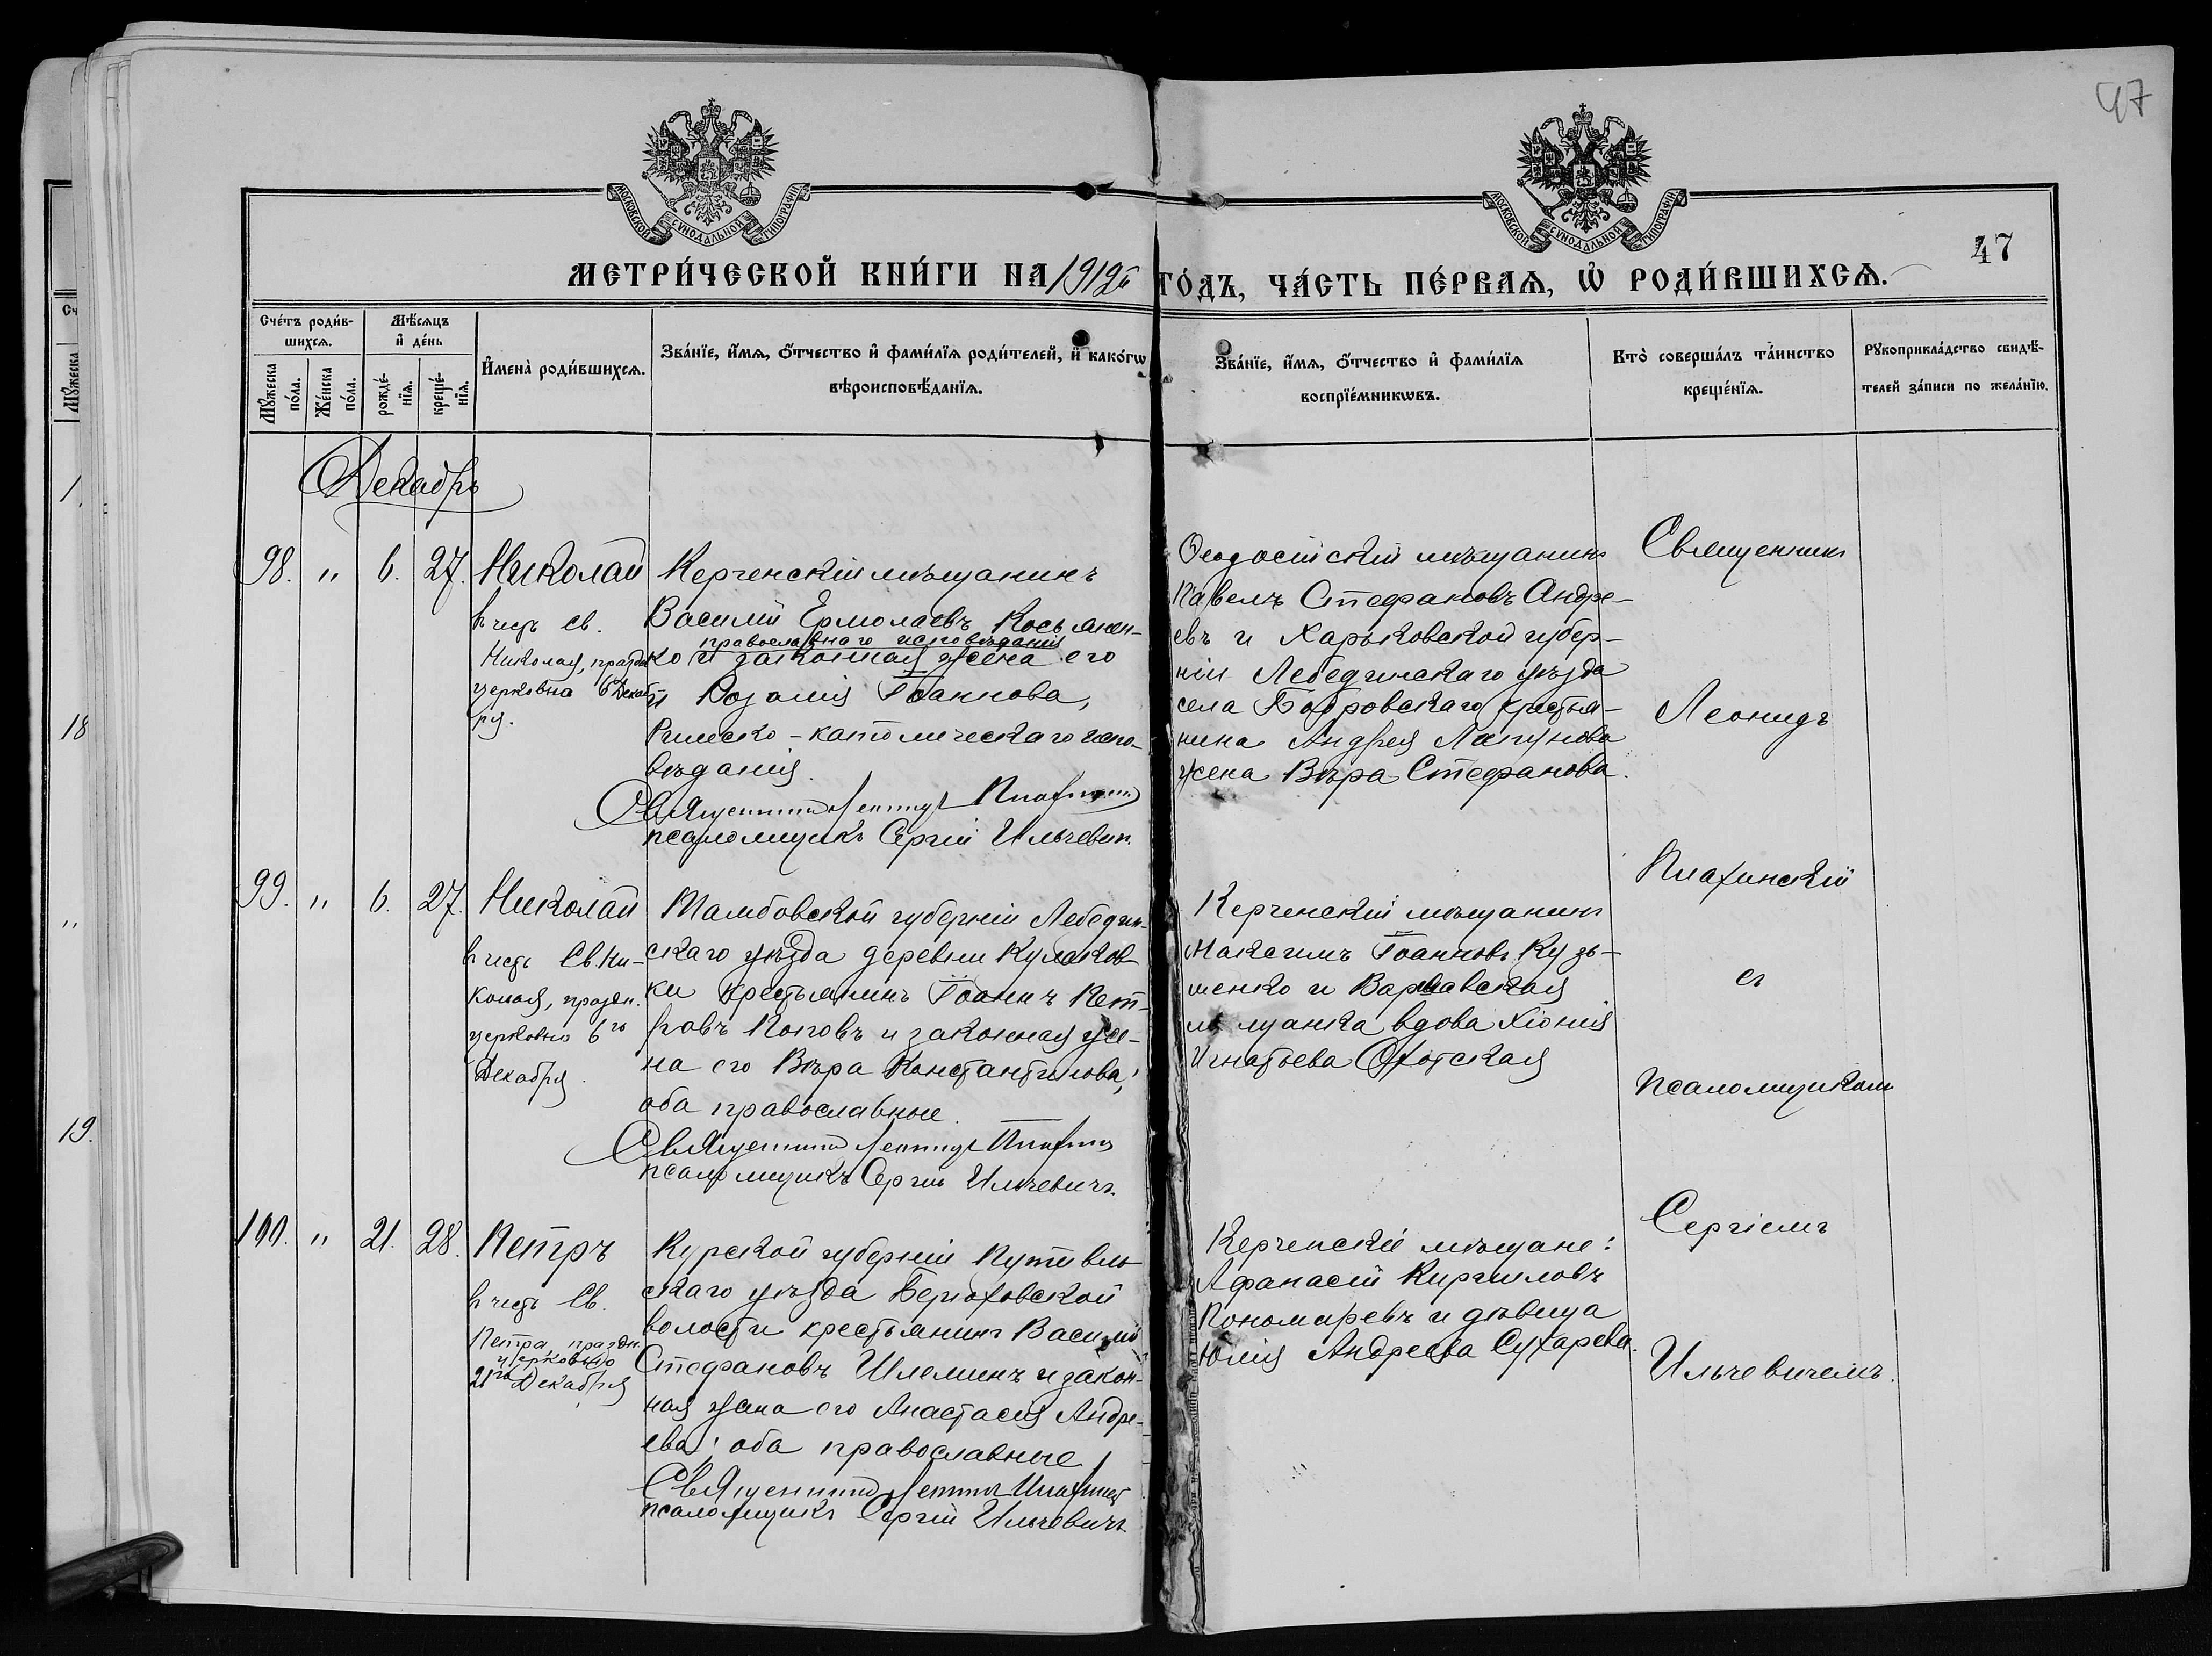 47
МОСКОВСКОЙ СѴНОДАЛЬНОЙ ТИПОГРАФІИ
МОСКОВСКОЙ СѴНОДАЛЬНОЙ ТИПОГРАФІИ
47
МЕТРИ́ЧЕСКОЙ КНИ́ГИ НА 1919й ГО́ДЪ, ЧА́СТЬ ПЕ́РВАѦ, Ѡ҆ РОДИ́ВШИХСѦ.
Сче́тъ роди́в-
шихсѧ.
Мꙋ́жеска
по́ла.
Же́нска
по́ла.
Мѣ́сѧцъ
и҆ де́нь
рожде́-
нїѧ.
креще́-
нїѧ.
И҆мена̀ роди́вшихсѧ.
Зва́нїе, и҆́мѧ, ѻ҆́тчество и҆ фами́лїѧ роди́телей, и҆ како́гѡ
вѣроисповѣ́данїѧ.
Зва́нїе, и҆́мѧ, ѻ҆́тчество и҆ фами́лїѧ
воспрїе́мникѡвъ.
Кто̀ соверша́лъ та́инство
креще́нїѧ.
Рꙋкоприкла́дство свидѣ́-
телей за́писи по жела́нїю.
Декабрь
98. " 6. 27. Николай
в честь св.
Николая, праздн.
церковью 6 Декаб
ря.
Керченскій мѣщанинъ
Василій Ермолаевъ Косьянен-
православнаго исповѣданія
ко и законная жена его
Розалія Іоаннова,
Римско-католическаго испо-
вѣданія.
Священникъ Леонидъ
псаломщикъ Сергій Ильчевич.
Ѳеодосійскій мѣщанинъ
Павелъ Стефановъ Андре-
евъ и Харьковской губер-
ніи Лебединскаго уѣзда
села Бобровскаго крестья-
нина Андрея Лапунова
жена Вѣра Стефанова.
99. " 6. 27. Николай
в честь Св. Ни-
колая, праздн.
церковью 6го
Декабря.
Тамбовской губерніи Лебедин-
скаго уѣзда деревни Кулаков-
ки крестьянинъ Іоаннъ Пет-
ровъ Поповъ и законная же-
на его Вѣра Константинова,
оба православные.
Священникъ Леонидъ
псаломщикъ Сергій Ильчевичъ.
Керченскій мѣщанинъ
Максимъ Іоанновъ Кузь-
менко и Варшавская
мѣщанка вдова Хіонія
Игнатьева Охотская
100. " 21. 28. Петръ
в честь Св.
Петра, праздн.
церковью
21го Декабря
Курской губерніи Путивль
скаго уѣзда
волости крестьянинъ Василій
Стефановъ Шлеминъ и закон-
ная жена его Анастасія Андре-
ева; оба православные
Священникъ Леонидъ
псаломщикъ Сергій Ильчевичъ
Керченскіе мѣщане:
Афанасій Кирилловъ
Пономаревъ и дѣвица
Юлія Андреева Сухарева.
Священник
Леонидъ
Плахинскій
съ
псаломщиком
Сергіемъ
Ильчевичемъ.
18
"
19.